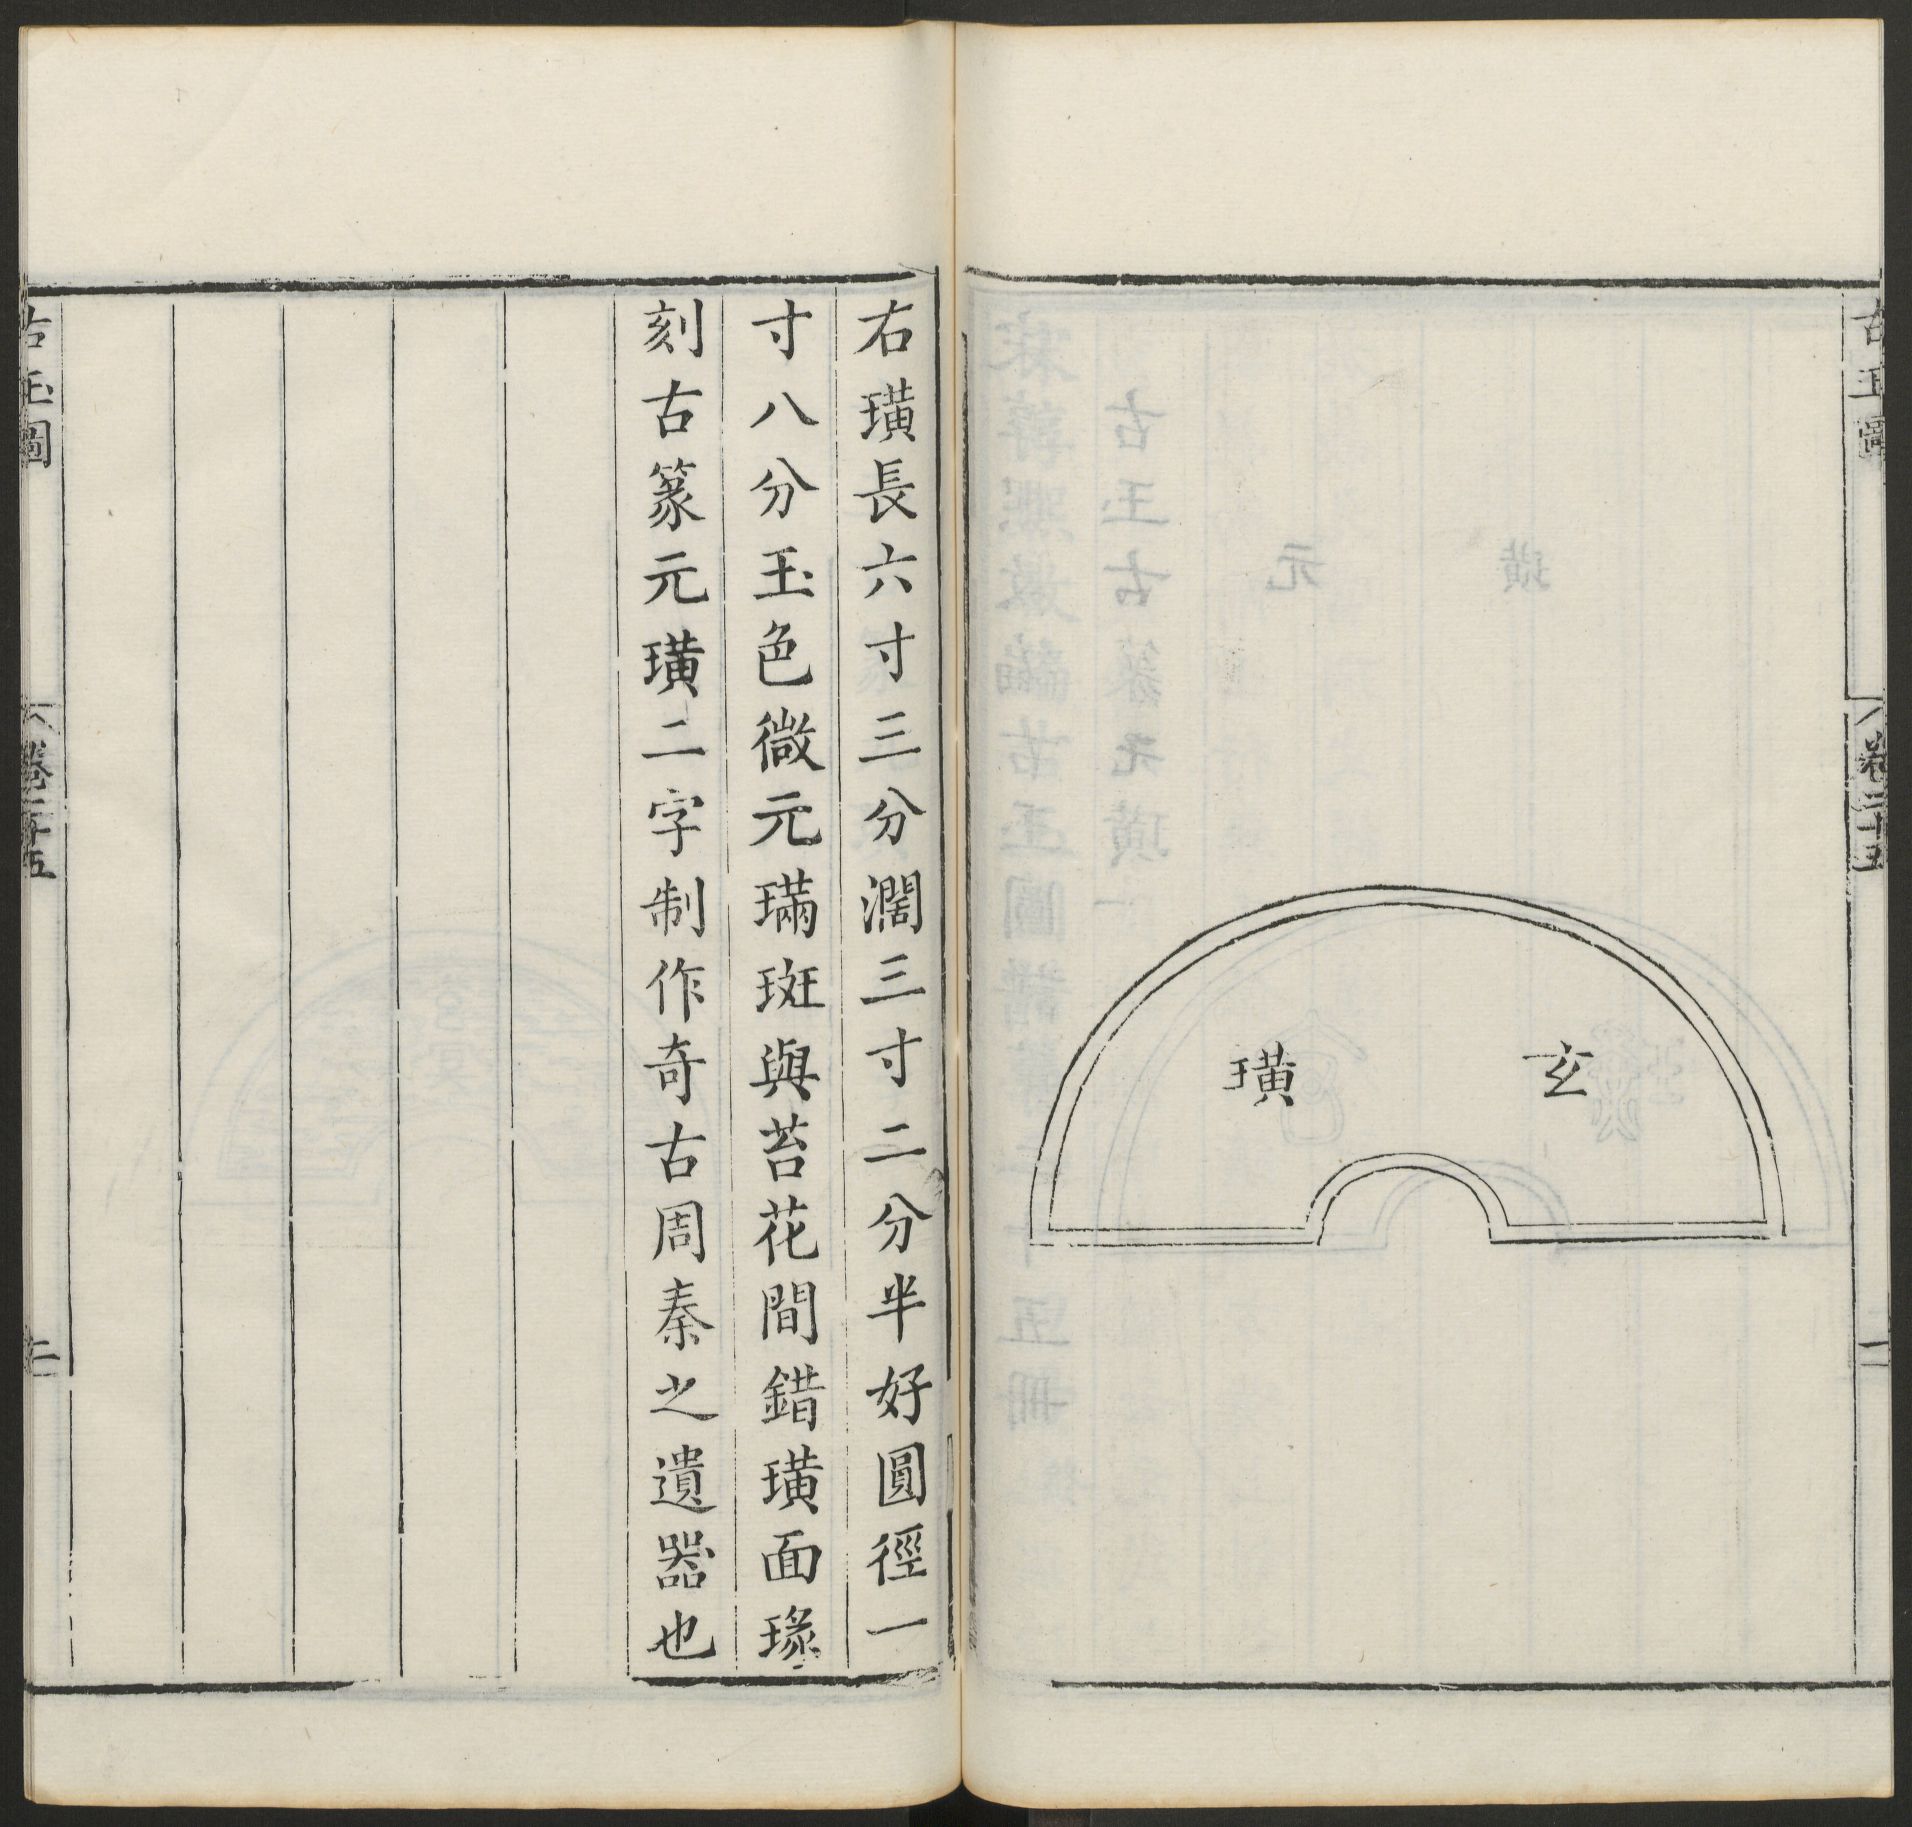 古玉圖
卷二十五
二
玄
璜
右璜長六寸三分濶三寸二分半好圓徑一
寸八分玉色微元璊斑與苔花間錯璜面瑑
刻古篆元璜二字制作奇古周秦之遺器也
古玉圖
卷二十五
二